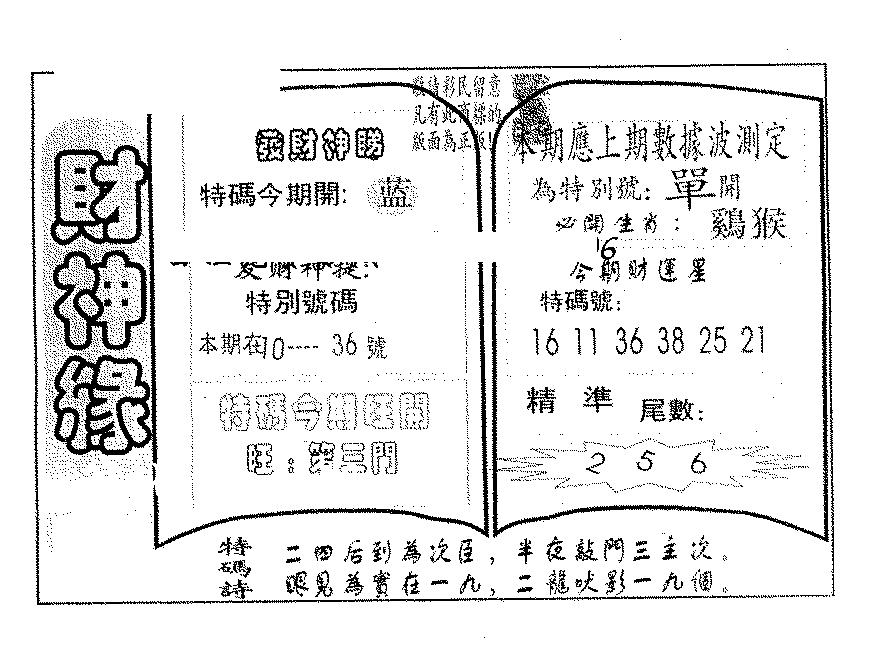 財神緣
敬請彩民留意
凡有此商標的
版面為正版!
發財神賜
特碼今期開: 蓝
愛財神提:
特別號碼
本期在10---- 36 號
特碼今期旺開
旺:第三門
本期應上期數據波測定
為特別號: 單開
必開生肖: 鷄猴
16
今期財運星
特碼號:
16 11 36 38 25 21
精 準 尾數:
2 5 6
特碼詩
二四后到為次臣, 半夜敲門三主次。
眼見為實在一九, 二龍吠影一九個。